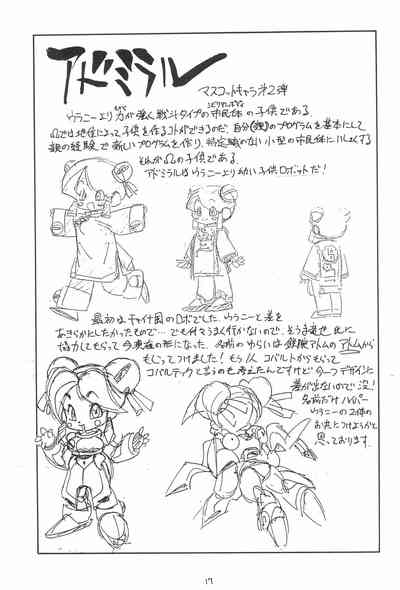 アドミラル
マスコットキャラ第2弾
ウラニーより力が強く戦斗タイプの市民体の子供である。
Ωでは地位によって子供を作るコトができるのだ。自分(親)のプログラムを基本にして
親の経験で新しいプログラムを作り、特定職のない小型の市民体にいしょくする
それがΩの子供である。
アドミラルはウラニーより幼い子供ロボットだ!
最初はチャイナ風のロボでした。ウラニーと差を
あきらかにしたかったもので… でも何てうまく行かないので、
協力してもらって今現在の形になった。名前のゆらいは鉄腕アトムのアトムから
もじってつけました! もう1人コバルトからもじって
コバルテックと言うのも考えたんですけど今一つデザインに
差が出ないので没!
名前だけハイパー
ウラニーの2体の
お供につけようかと
思っております。
17